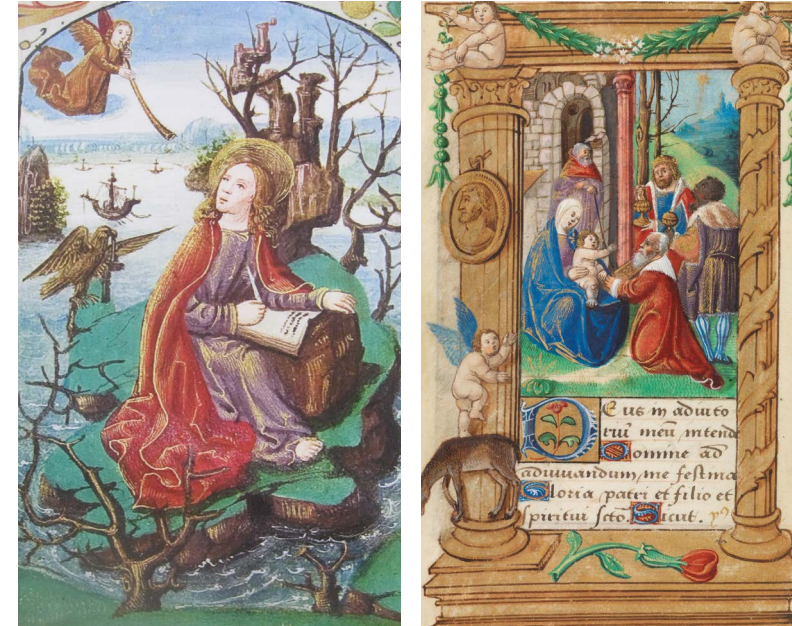 Eus in adiuto
riū meū intende
Domine ad
adiuvandum me festina
Gloria patri et filio et
spiritui scto. Sicut.